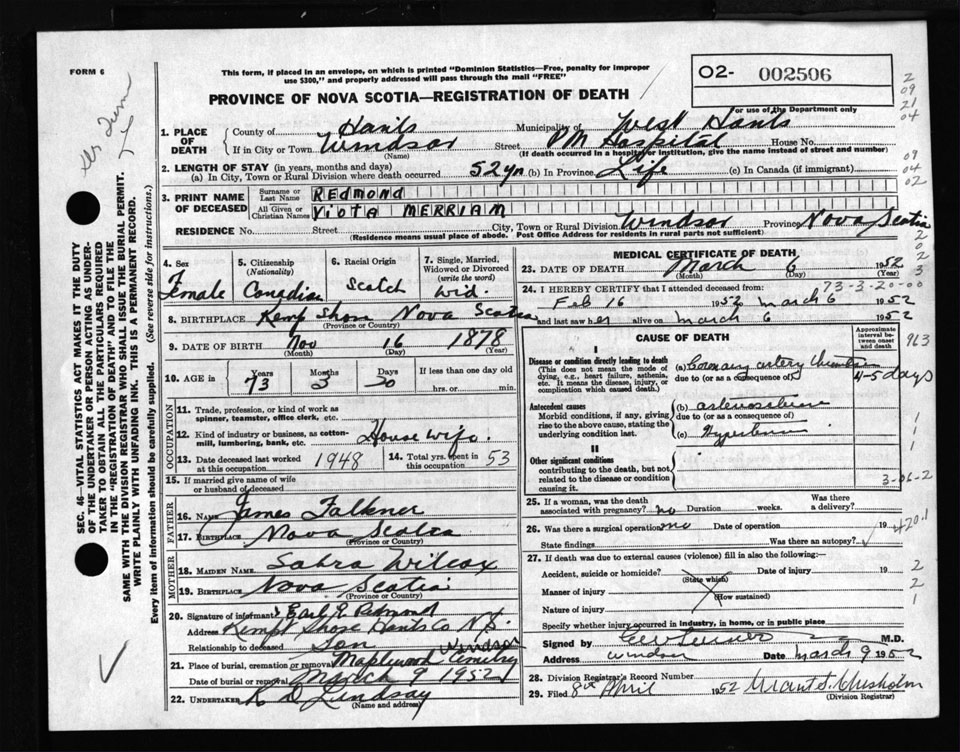 FORM 6
This form, if placed in an envelope, on which is printed "Dominion Statistics—Free, penalty for improper
use $300," and properly addressed will pass through the mail "FREE"
02- 002506
PROVINCE OF NOVA SCOTIA—REGISTRATION OF DEATH
For use of the Department only
2
09
21
04
1. PLACE OF DEATH
County of Hants Municipality of West Hants
If in City or Town Windsor Street Hospital House No.
(Name) (If death occurred in a hospital or institution, give the name instead of street and number)
2. LENGTH OF STAY (in years, months and days)
(a) In City, Town or Rural Division where death occurred 52 yrs (b) In Province Life (c) In Canada (if immigrant)
09
04
02
3. PRINT NAME OF DECEASED
Surname or Last Name REDMOND
All Given or Christian Names VIOTA MERRIAM
RESIDENCE No. Street City, Town or Rural Division Windsor Province Nova Scotia
(Residence means usual place of abode. Post Office Address for residents in rural parts not sufficient)
4. Sex
Female
5. Citizenship
(Nationality)
Canadian
6. Racial Origin
Scotch
7. Single, Married,
Widowed or Divorced
(write the word)
Wid.
8. BIRTHPLACE Kemp Shore Nova Scotia
(Province or Country)
9. DATE OF BIRTH Nov 16 1878
(Month) (Day) (Year)
10. AGE in Years Months Days If less than one day
73 3 hrs. or min.
OCCUPATION
11. Trade, profession, or kind of work as
spinner, teamster, office clerk, etc.
12. Kind of industry or business, as cotton-
mill, lumbering, bank, etc. House wife.
13. Date deceased last worked
at this occupation 1948
14. Total yrs. spent in
this occupation 53
15. If married give name of wife
or husband of deceased
FATHER
16. Name James Falkner
17. Birthplace Nova Scotia
(Province or Country)
MOTHER
18. MAIDEN NAME Sabra Wilcox
19. BIRTHPLACE Nova Scotia
(Province or Country)
20. Signature of informant Earl Redmond
Address Kempt Shore Hants Co N.S.
Relationship to deceased Son
Windsor
21. Place of burial, cremation or removal Maplewood Cemetry
Date of burial or removal March 9 1952
22. UNDERTAKER K D Lindsay
(Name and Address)
MEDICAL CERTIFICATE OF DEATH
23. DATE OF DEATH March 6 1952
(Month) (Day) (Year)
24. I HEREBY CERTIFY that I attended deceased from:
73-3-20-00
Feb 16 1952 March 6 1952
and last saw her alive on March 6 1952
CAUSE OF DEATH
Approximate
interval be-
tween onset
and death
963
I
Disease or condition directly leading to death
(This does not mean the mode of
dying, e.g., heart failure, asthenia,
etc. It means the disease, injury, or
complication which caused death.)
(a) Coronary artery
due to (or as a consequence of)
4-5 days
Antecedent causes
Morbid conditions, if any, giving
rise to the above cause, stating the
underlying condition last.
(b)
due to (or as a consequence of)
(c)
II
Other significant conditions
contributing to the death, but not
related to the disease or condition
causing it.
3-06-2
25. If a woman, was the death
associated with pregnancy? no Duration weeks. Was there
a delivery?
26. Was there a surgical operation no Date of operation 19
420.1
State findings Was there an autopsy?
27. If death was due to external causes (violence) fill in also the following:—
Accident, suicide or homicide? Date of injury 19
(State which)
Manner of injury
(How sustained)
Nature of injury
Specify whether injury occurred in industry, in home, or in public place
Signed by M.D.
Address Windsor Date March 9 1952
28. Division Registrar's Record Number
29. Filed 8th April 1952 Grant S. Chisholm
(Division Registrar)
SEC. 46—VITAL STATISTICS ACT MAKES IT THE DUTY
OF THE UNDERTAKER OR PERSON ACTING AS UNDER-
TAKER TO OBTAIN ALL THE PARTICULARS REQUIRED
IN THE "REGISTRATION OF DEATH" AND TO FILE THE
SAME WITH THE DIVISION REGISTRAR WHO SHALL ISSUE THE BURIAL PERMIT.
WRITE PLAINLY WITH UNFADING INK. THIS IS A PERMANENT RECORD.
Every item of information should be carefully supplied. (See reverse side for instructions.)